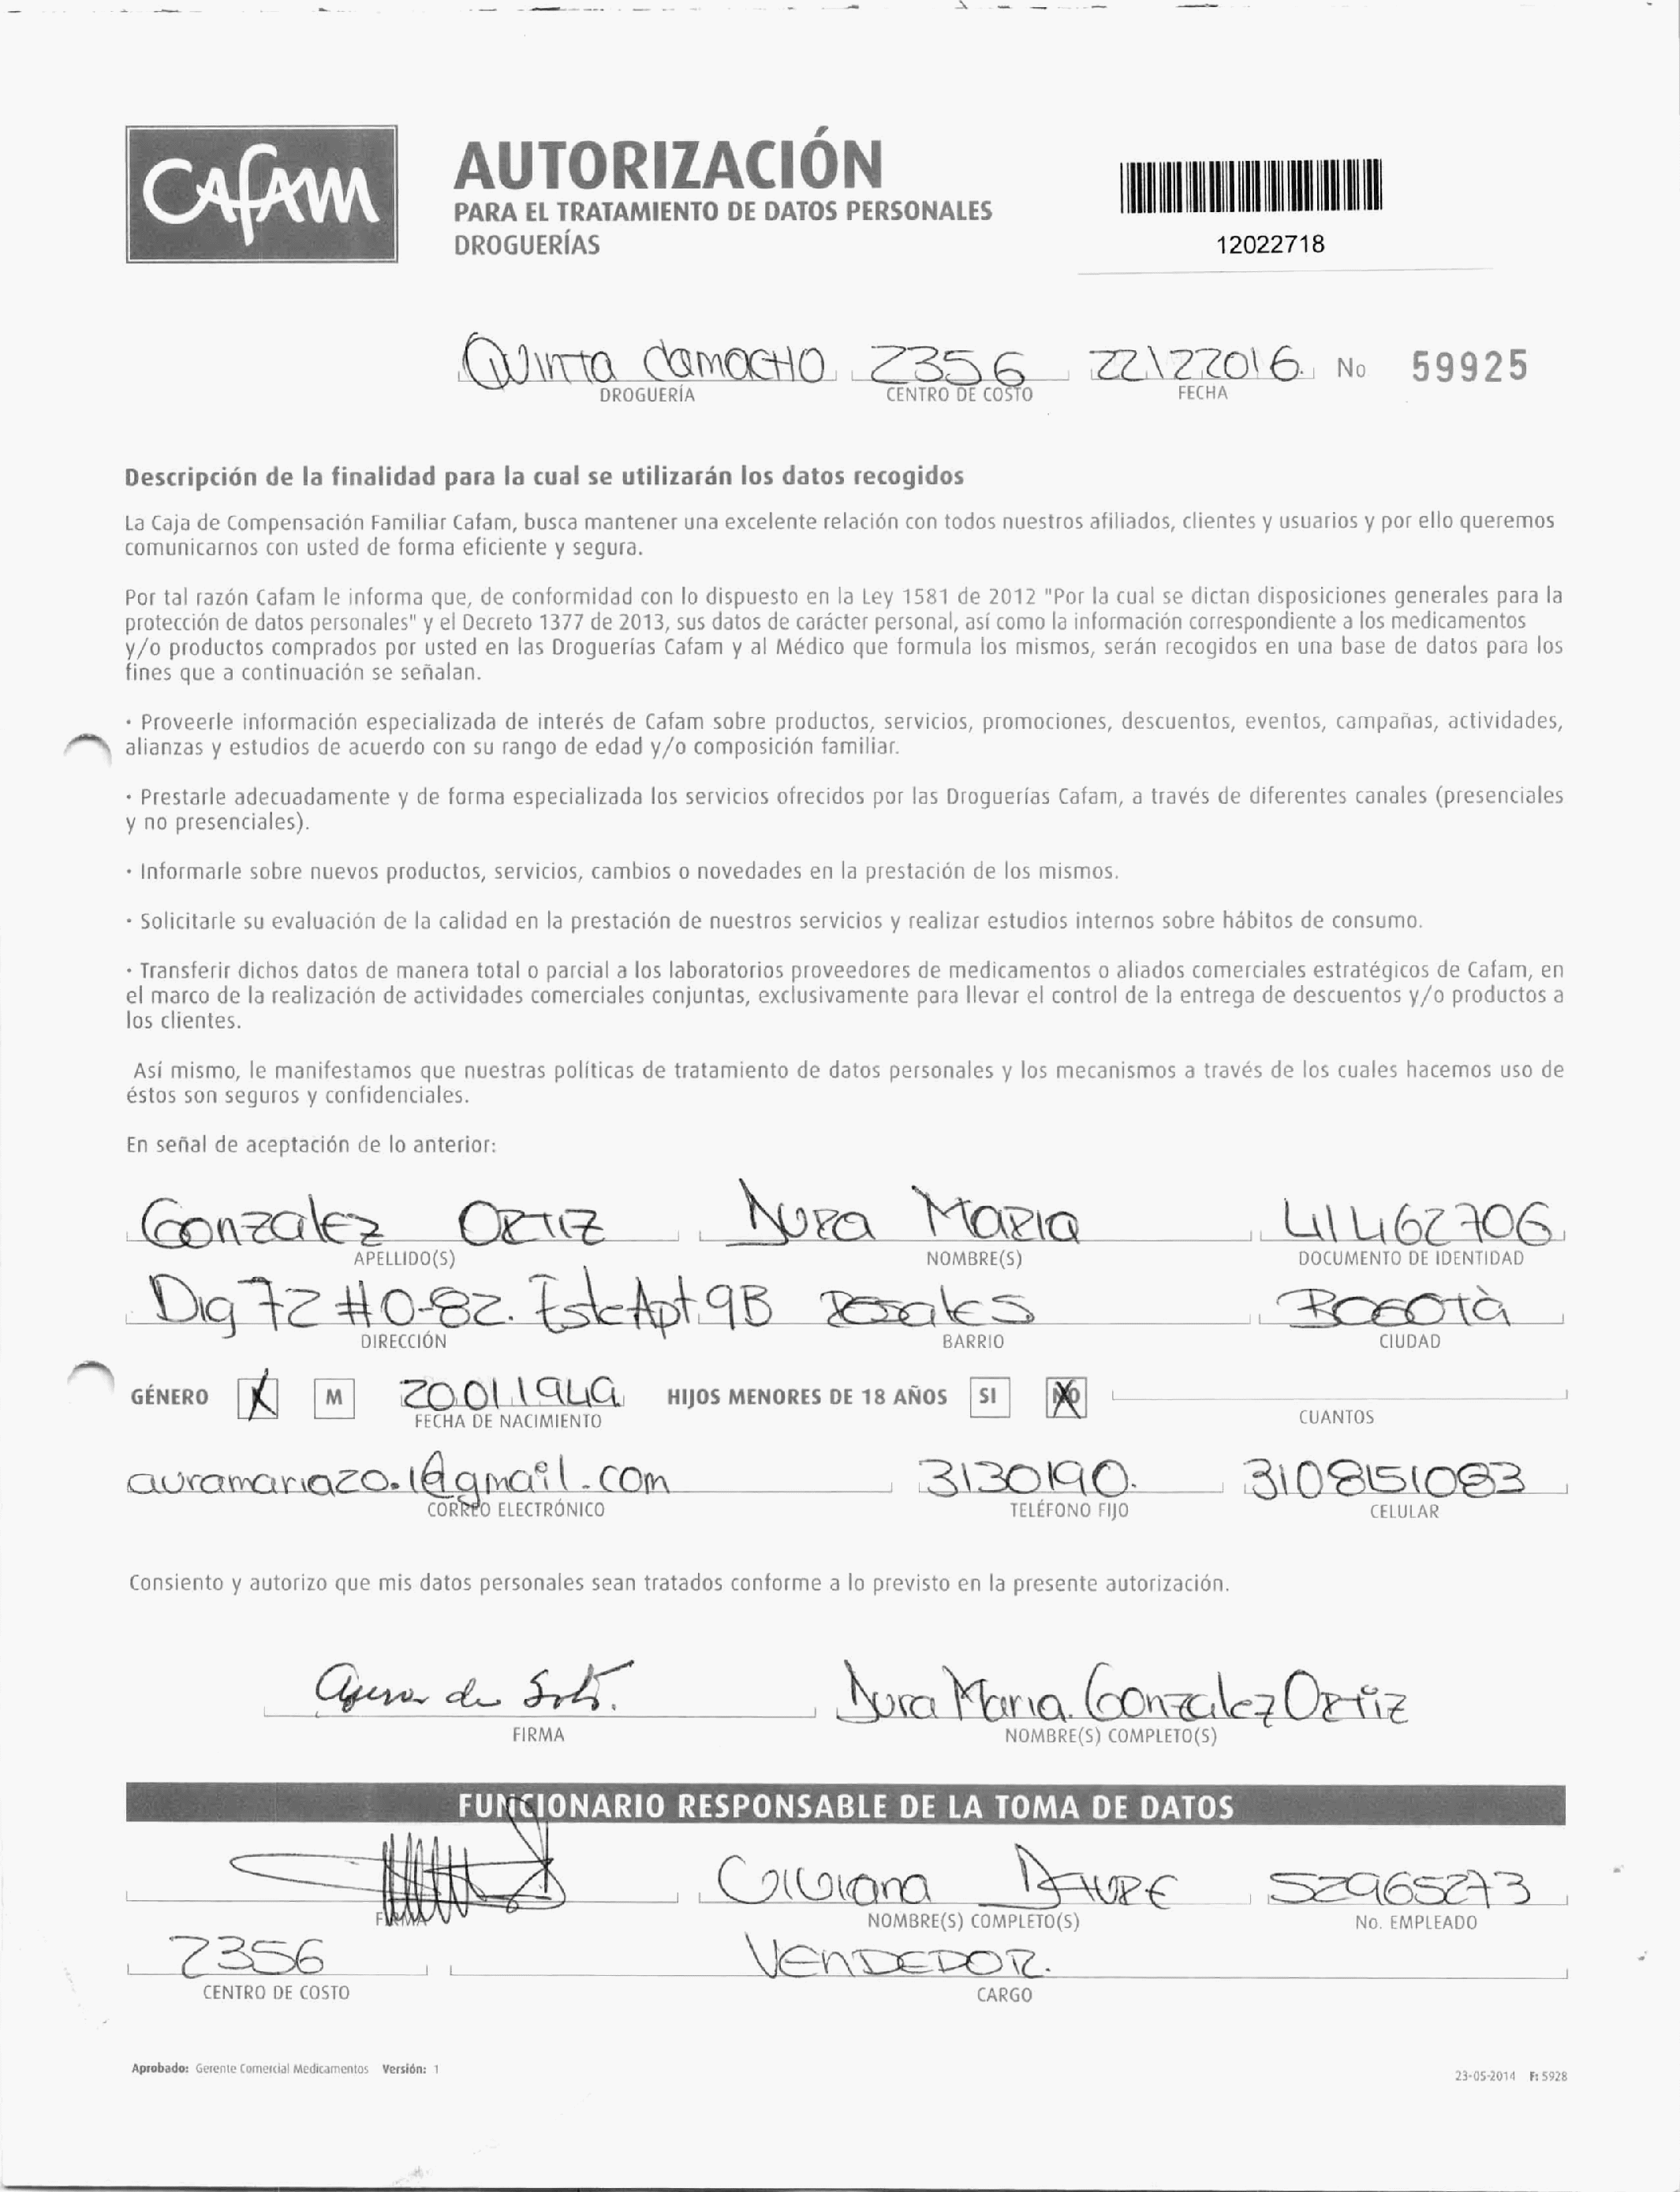 Cafam
AUTORIZACIÓN
PARA EL TRATAMIENTO DE DATOS PERSONALES
DROGUERÍAS
12022718
Quinta Camacho 2356 22\22016. No 59925
DROGUERÍA CENTRO DE COSTO FECHA
Descripción de la finalidad para la cual se utilizarán los datos recogidos
La Caja de Compensación Familiar Cafam, busca mantener una excelente relación con todos nuestros afiliados, clientes y usuarios y por ello queremos
comunicarnos con usted de forma eficiente y segura.
Por tal razón Cafam le informa que, de conformidad con lo dispuesto en la Ley 1581 de 2012 "Por la cual se dictan disposiciones generales para la
protección de datos personales" y el Decreto 1377 de 2013, sus datos de carácter personal, así como la información correspondiente a los medicamentos
y/o productos comprados por usted en las Droguerías Cafam y al Médico que formula los mismos, serán recogidos en una base de datos para los
fines que a continuación se señalan.
· Proveerle información especializada de interés de Cafam sobre productos, servicios, promociones, descuentos, eventos, campañas, actividades,
alianzas y estudios de acuerdo con su rango de edad y/o composición familiar.
· Prestarle adecuadamente y de forma especializada los servicios ofrecidos por las Droguerías Cafam, a través de diferentes canales (presenciales
y no presenciales).
· Informarle sobre nuevos productos, servicios, cambios o novedades en la prestación de los mismos.
· Solicitarle su evaluación de la calidad en la prestación de nuestros servicios y realizar estudios internos sobre hábitos de consumo.
· Transferir dichos datos de manera total o parcial a los laboratorios proveedores de medicamentos o aliados comerciales estratégicos de Cafam, en
el marco de la realización de actividades comerciales conjuntas, exclusivamente para llevar el control de la entrega de descuentos y/o productos a
los clientes.
Así mismo, le manifestamos que nuestras políticas de tratamiento de datos personales y los mecanismos a través de los cuales hacemos uso de
éstos son seguros y confidenciales.
En señal de aceptación de lo anterior:
Gonzalez Ortiz Aura Maria 41462706
APELLIDO(S) NOMBRE(S) DOCUMENTO DE IDENTIDAD
Dig 72 #0-82. Este Apt. 9B Rosales Bogotà
DIRECCIÓN BARRIO CIUDAD
GÉNERO M 20011949 HIJOS MENORES DE 18 AÑOS SI NO
FECHA DE NACIMIENTO CUANTOS
auramaria20.1@gmail.com 3130190. 3108151083
CORREO ELECTRÓNICO TELÉFONO FIJO CELULAR
Consiento y autorizo que mis datos personales sean tratados conforme a lo previsto en la presente autorización.
de Aura Maria. Gonzalez Ortiz
FIRMA NOMBRE(S) COMPLETO(S)
FUNCIONARIO RESPONSABLE DE LA TOMA DE DATOS
52965273
FIRMA NOMBRE(S) COMPLETO(S) No. EMPLEADO
2356 VENDEDOR.
CENTRO DE COSTO CARGO
Aprobado: Gerente Comercial Medicamentos Versión: 1
23-05-2014 F: 5928